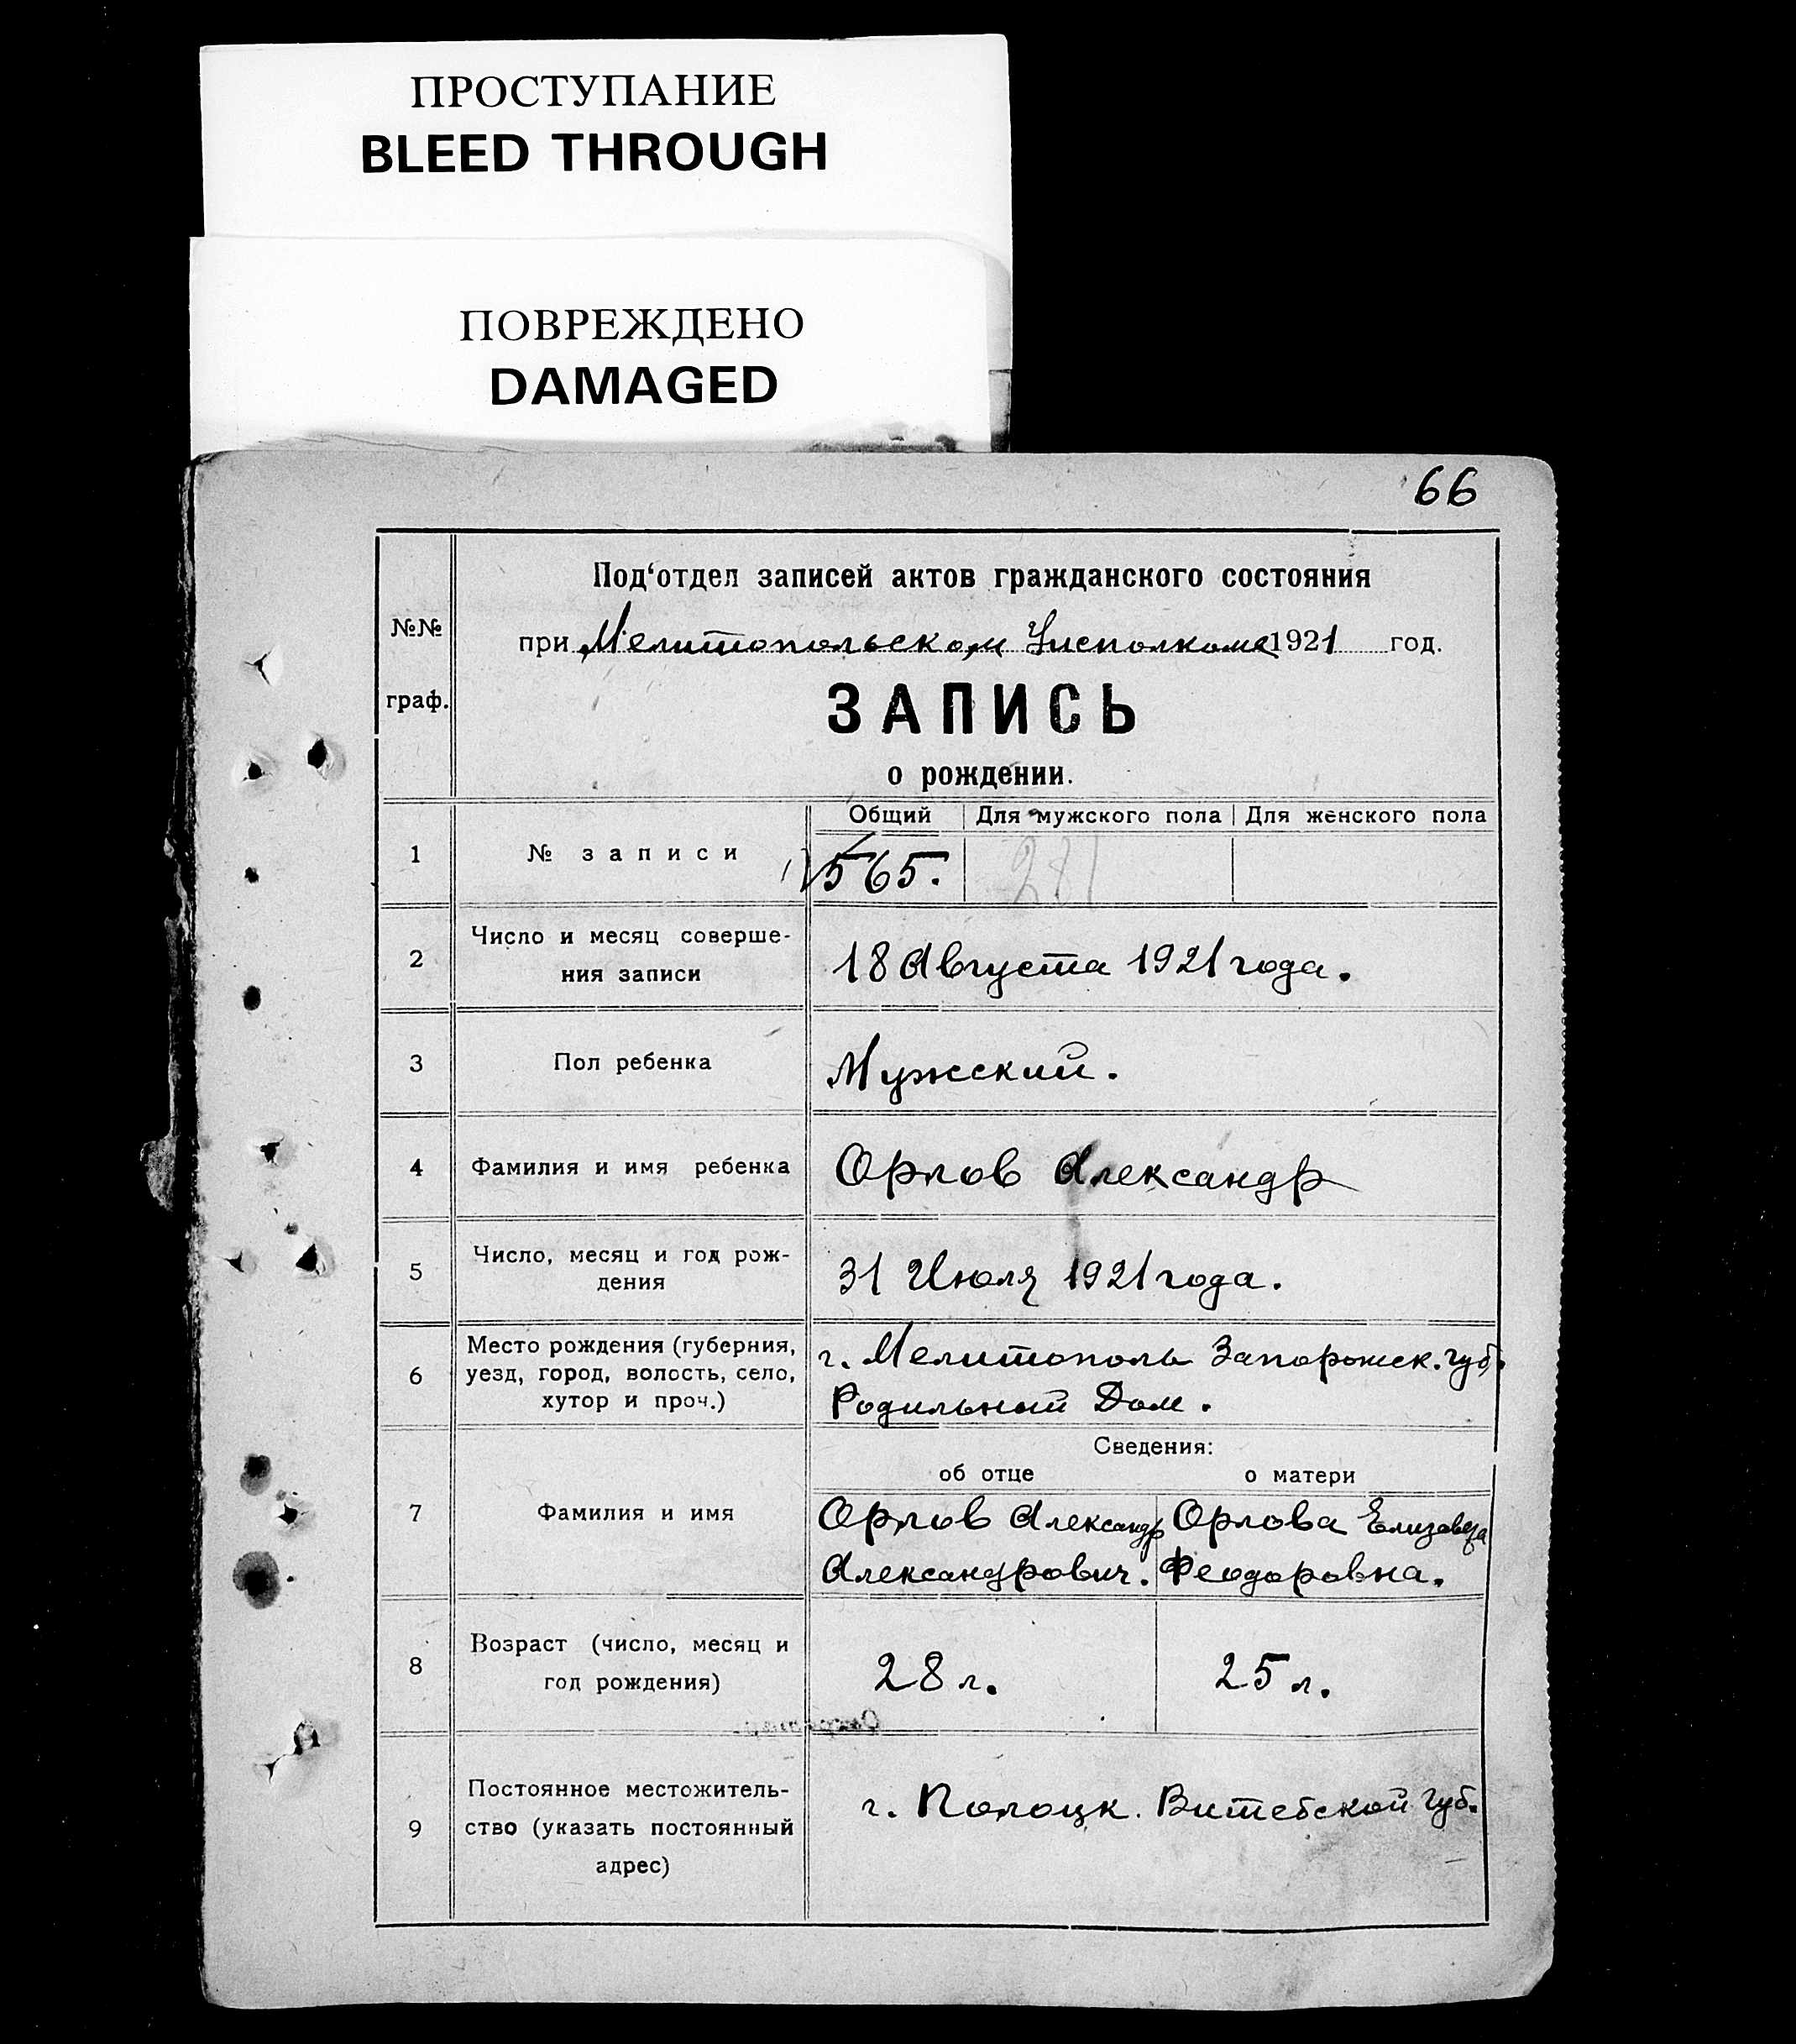 ПРОСТУПАНИЕ
BLEED THROUGH
ПОВРЕЖДЕНО
DAMAGED
66
№№
граф.
Под‘отдел записей актов гражданского состояния
при Мелитопольском Уисполкоме 1921 год.
ЗАПИСЬ
о рождении.
Общий Для мужского пола Для женского пола
1 № записи 565. 281
2 Число и месяц соверше-
ния записи
18 Августа 1921 года.
3 Пол ребенка Мужский.
4 Фамилия и имя ребенка Орлов Александр
5 Число, месяц и год рож-
дения
31 Июля 1921 года.
6 Место рождения (губерния,
уезд, город, волость, село,
хутор и проч.)
г. Мелитополь Запорожск. губ.
Родильный Дом.
Сведения:
об отце о матери
7 Фамилия и имя
Орлов Александр
Александрович.
Орлова Елизавета
Феодоровна.
8 Возраст (число, месяц и
год рождения)
28 л. 25 л.
9 Постоянное местожитель-
ство (указать постоянный
адрес)
г. Полоцк. Витебской губ.